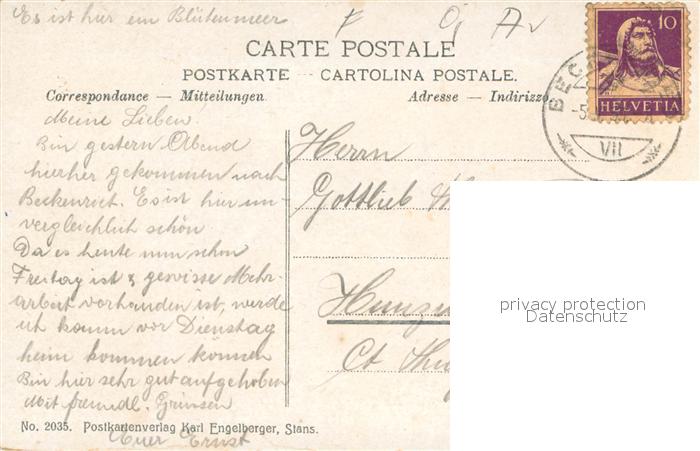 Es ist hier ein Blütenmeer
CARTE POSTALE
POSTKARTE — CARTOLINA POSTALE.
Correspondance — Mitteilungen
Adresse — Indirizzo
10
HELVETIA
VII
Meine Lieben.
Bin gestern Abend
hierher gekommen nach
Beckenried. Es ist hier un-
vergleichlich schön.
Da es heute nun schon
Freitag ist & gewisse Mehr-
arbeit vorhanden ist, werde
ich kaum vor Dienstag
heim kommen können
Bin hier sehr gut aufgehoben
Mit freundl. Grüssen
Euer Ernst
Herrn
Gottlieb
Ct
privacy protection
Datenschutz
No. 2035. Postkartenverlag Karl Engelberger, Stans.